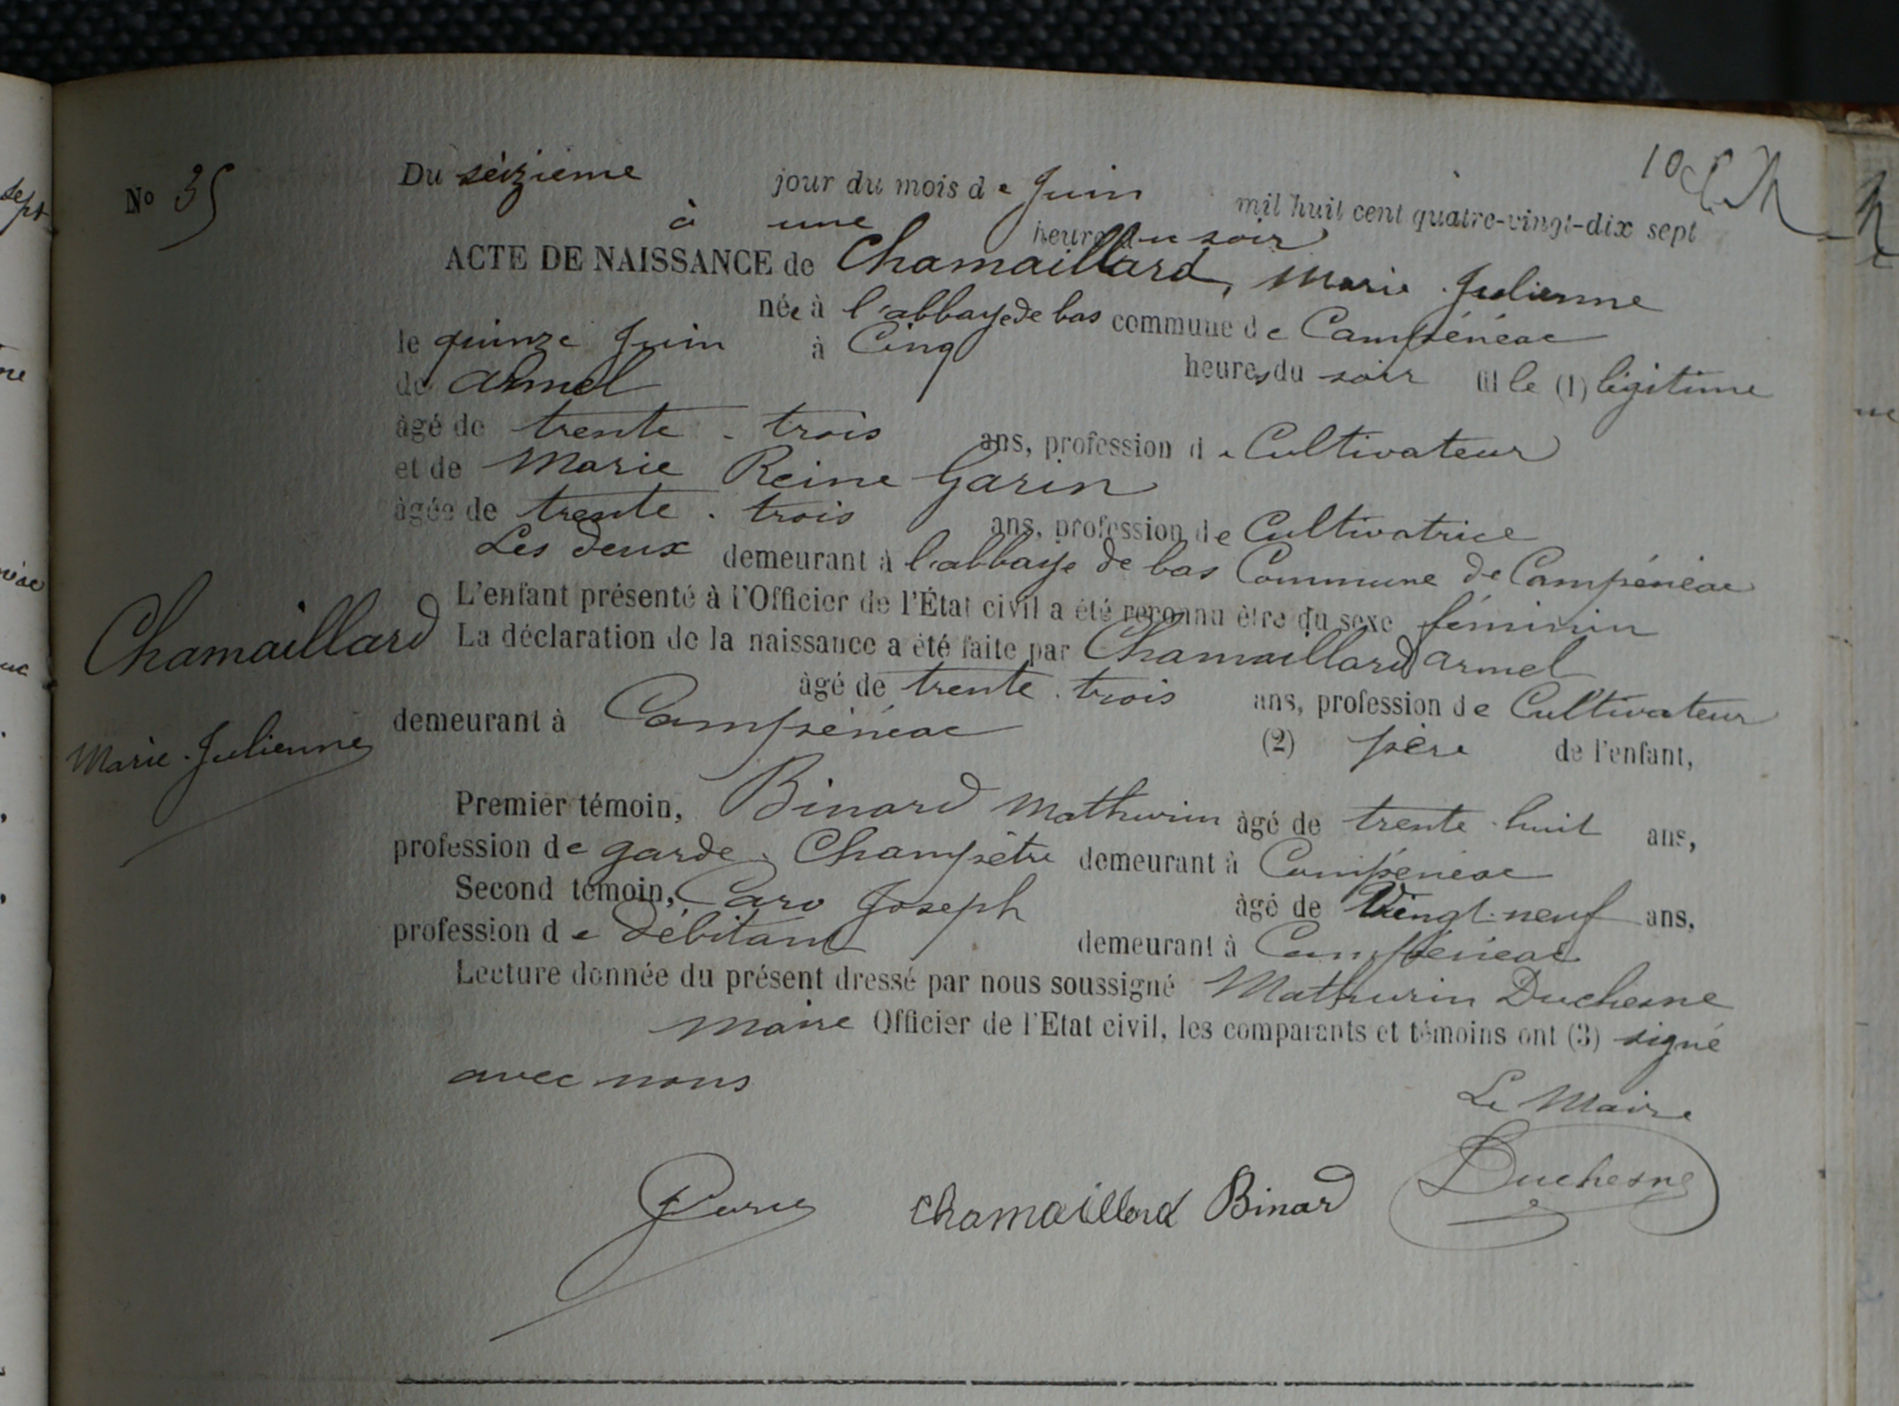 No 35
Du seizième jour du mois de Juin mil huit cent quatre-vingt-dix sept
à une heure du soir
ACTE DE NAISSANCE de Chamaillard, Marie Julienne
née à l'abbaye de bas commune de Campénéac
le quinze Juin à Cinq heures du soir fille (1) légitime
de Armel
âgé de trente-trois ans, profession de Cultivateur
et de Marie Reine Garin
âgée de trente-trois ans, profession de Cultivatrice
Les deux demeurant à l'abbaye de bas Commune de Campénéac
L'enfant présenté à l'Officier de l'État civil a été reconnu être du sexe féminin
Chamaillard
La déclaration de la naissance a été faite par Chamaillard Armel
âgé de trente-trois ans, profession de Cultivateur
Marie-Julienne
demeurant à Campénéac (2) père de l'enfant,
Premier témoin, Binard Mathurin âgé de trente-huit ans,
profession de garde-Champêtre demeurant à Campénéac
Second témoin, Caro Joseph âgé de Vingt-neuf ans,
profession de débitant demeurant à Campénéac
Lecture donnée du présent dressé par nous soussigné Mathurin Duchesne
Maire Officier de l'Etat civil, les comparants et témoins ont (3) signé
avec nous
Le Maire
Chamaillard Binard Duchesne